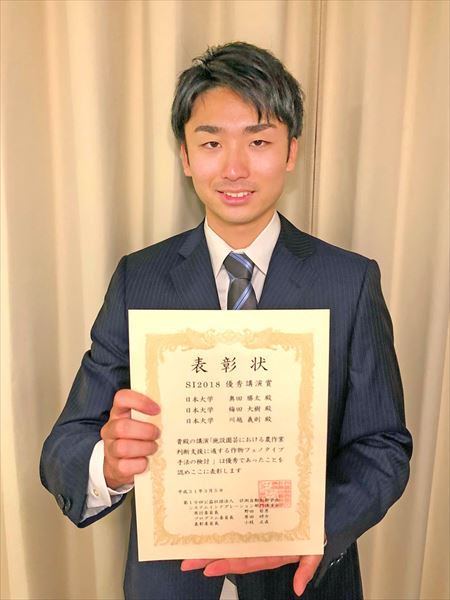 表彰状
SI2018 優秀講演賞
日本大学 奥田 勝太 殿
日本大学 梅田 大樹 殿
日本大学 川越 義則 殿
貴殿の講演「施設園芸における農作業
判断支援に適する作物フェノタイプ
手法の検討」は優秀であったことを
認めここに表彰します
平成31年3月5日
システムインテグレーション部門
実行委員長
プログラム委員長
表彰委員長